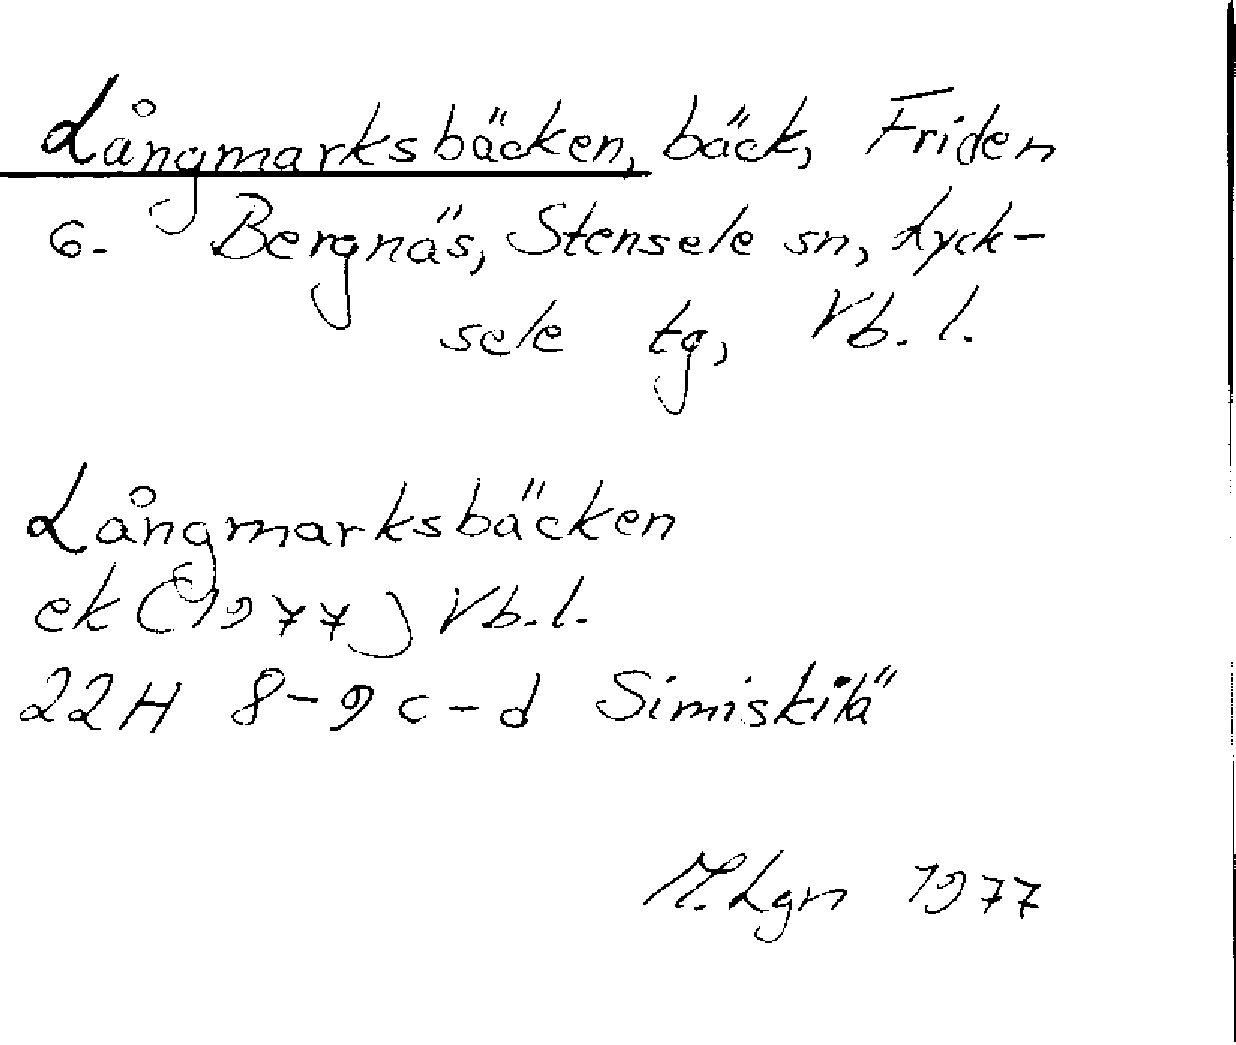 Långmarksbäcken, bäck, Friden
6. Bergnäs, Stensele sn, Lyck-
sele tg, Vb. l.
Långmarksbäcken
ek (1977) Vb. l.
22H 8-9 c-d Simiskilä
M. Lgn 1977